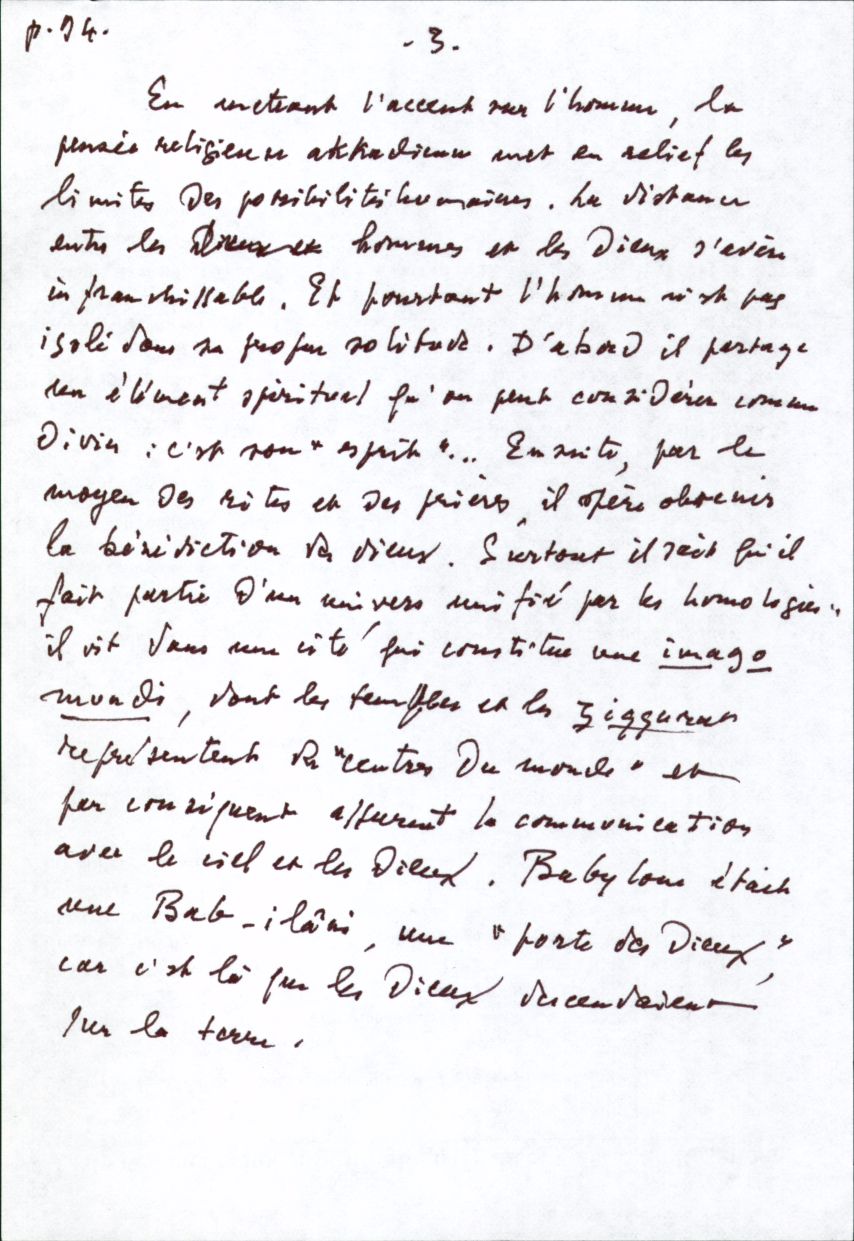 p. 94.
- 3.
En mettant l'accent sur l'homme, la
pensée religieuse akkadienne met en relief les
limites des possibilités humaines. La distance
entre les Dieux et hommes et les Dieux s'avère
infranchissable. Et pourtant l'homme n'est pas
isolé dans sa propre solitude. D'abord il partage
un élément spirituel qu'on peut considérer comme
Divin : c'est son "esprit"... Ensuite, par le
moyen des rites et des prières, il espère obtenir
la bénédiction des dieux. Surtout il sait qu'il
fait partie d'un univers unifié par les homologies :
il vit dans une cité qui constitue une imago
mundi, dont les temples et les ziqqurats
représentent des "centres du monde" et
par conséquent assurent la communication
avec le ciel et les Dieux. Babylone était
une Bab-ilâni, une "porte des Dieux",
car c'est là que les Dieux descendaient
sur la terre.